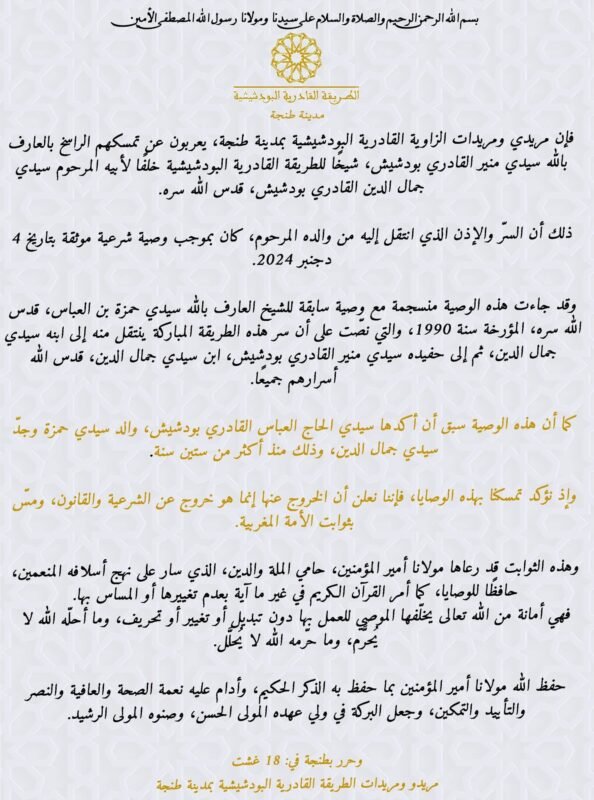 بسم الله الرحمن الرحيم والصلاة والسلام على سيدنا ومولانا رسول الله المصطفى الأمين
الطريقة القادرية البودشيشية
مدينة طنجة
فإن مريدي ومريدات الزاوية القادرية البودشيشية بمدينة طنجة، يعربون عن تمسكهم الراسخ بالعارف
بالله سيدي منير القادري بودشيش، شيخًا للطريقة القادرية البودشيشية خلفًا لأبيه المرحوم سيدي
جمال الدين القادري بودشيش، قدس الله سره.
ذلك أن السرّ والإذن الذي انتقل إليه من والده المرحوم، كان بموجب وصية شرعية موثقة بتاريخ 4
دجنبر 2024.
وقد جاءت هذه الوصية منسجمة مع وصية سابقة للشيخ العارف بالله سيدي حمزة بن العباس، قدس
الله سره، المؤرخة سنة 1990، والتي نصّت على أن سر هذه الطريقة المباركة ينتقل منه إلى ابنه سيدي
جمال الدين، ثم إلى حفيده سيدي منير القادري بودشيش، ابن سيدي جمال الدين، قدس الله
أسرارهم جميعًا.
كما أن هذه الوصية سبق أن أكدها سيدي الحاج العباس القادري بودشيش، والد سيدي حمزة وجدّ
سيدي جمال الدين، وذلك منذ أكثر من ستين سنة.
وإذ نؤكد تمسكنا بهذه الوصايا، فإننا نعلن أن الخروج عنها إنما هو خروج عن الشرعية والقانون، ومسّ
بثوابت الأمة المغربية.
وهذه الثوابت قد رعاها مولانا أمير المؤمنين، حامي الملة والدين، الذي سار على نهج أسلافه المنعمين،
حافظًا للوصايا، كما أمر القرآن الكريم في غير ما آية بعدم تغييرها أو المساس بها.
فهي أمانة من الله تعالى يخلّفها الموصي للعمل بها دون تبديل أو تغيير أو تحريف، وما أحلّه الله لا
يُحرَّم، وما حرّمه الله لا يُحلَّل.
حفظ الله مولانا أمير المؤمنين بما حفظ به الذكر الحكيم، وأدام عليه نعمة الصحة والعافية والنصر
والتأييد والتمكين، وجعل البركة في ولي عهده المولى الحسن، وصنوه المولى الرشيد.
وحرر بطنجة في: 18 غشت
مريدو ومريدات الطريقة القادرية البودشيشية بمدينة طنجة